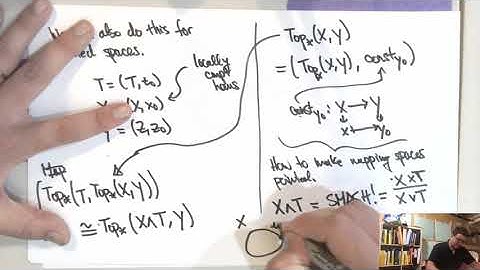 also do this for
spaces.
T = (T, t₀)
(X, x₀)
Y = (Z, z₀)
locally
haus
(Top*(T, Top*(X, Y))
≅ Top*(X∧T, Y)
Top*(X, Y)
= (Top*(X, Y), const y₀)
const y₀ : X → Y
x ↦ y₀
How to make mapping spaces
pointed
X∧T = SMASH! = X×T
X∨T
X